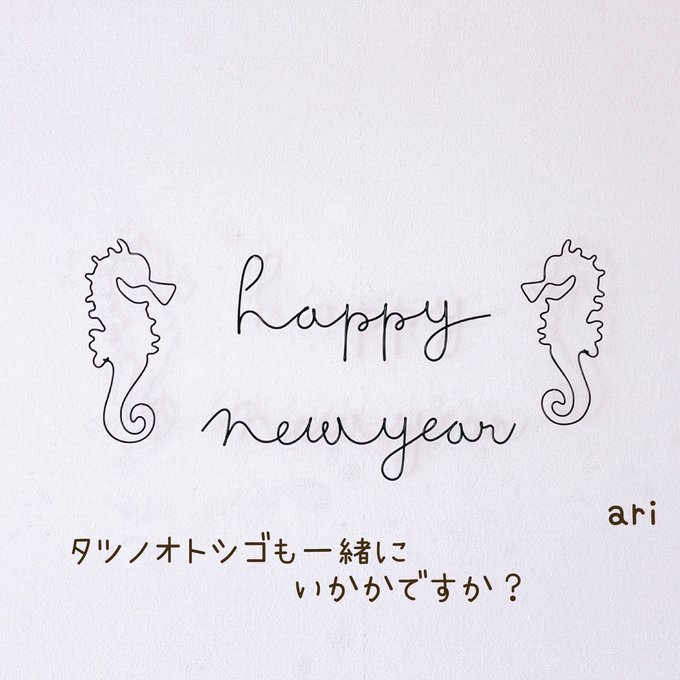 happy
newyear
ari
タツノオトシゴも一緒に
いかかですか？